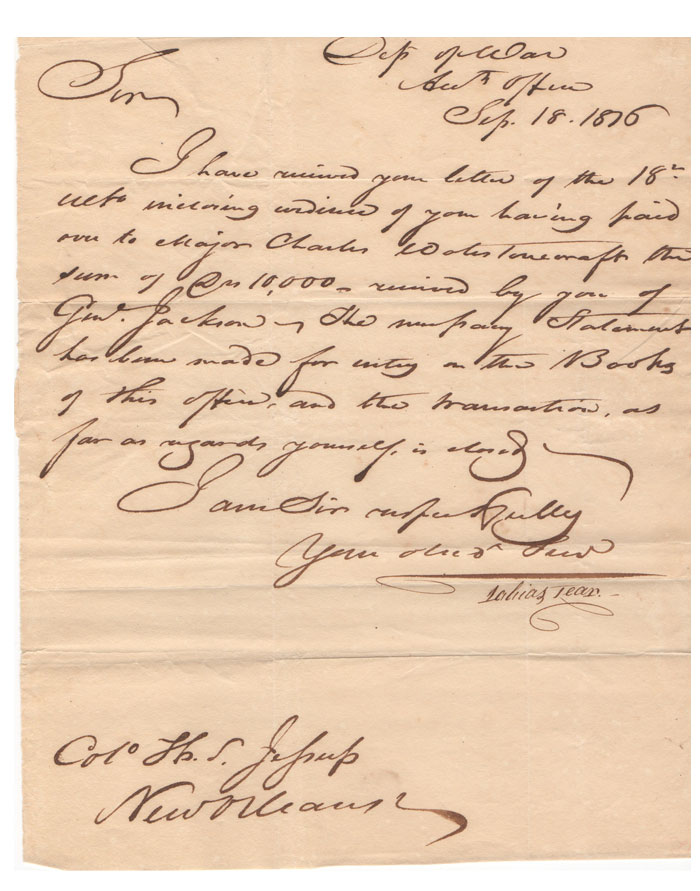 Dep. of War
Acct. Office
Sep. 18. 1816
Sir
I have received your letter of the 18th
ulto inclosing evidence of your having paid
over to Major Charles Wolstonecraft the
sum of Drs 10,000 - received by you of
Genl. Jackson - The necessary Statement
has been made for entry on the Books
of this office, and the transaction, as
far as regards yourself, is closed
I am Sir respectfully
Your obed. Serv
Tobias Lear. -
Colo. Th. S. Jessup
New Orleans